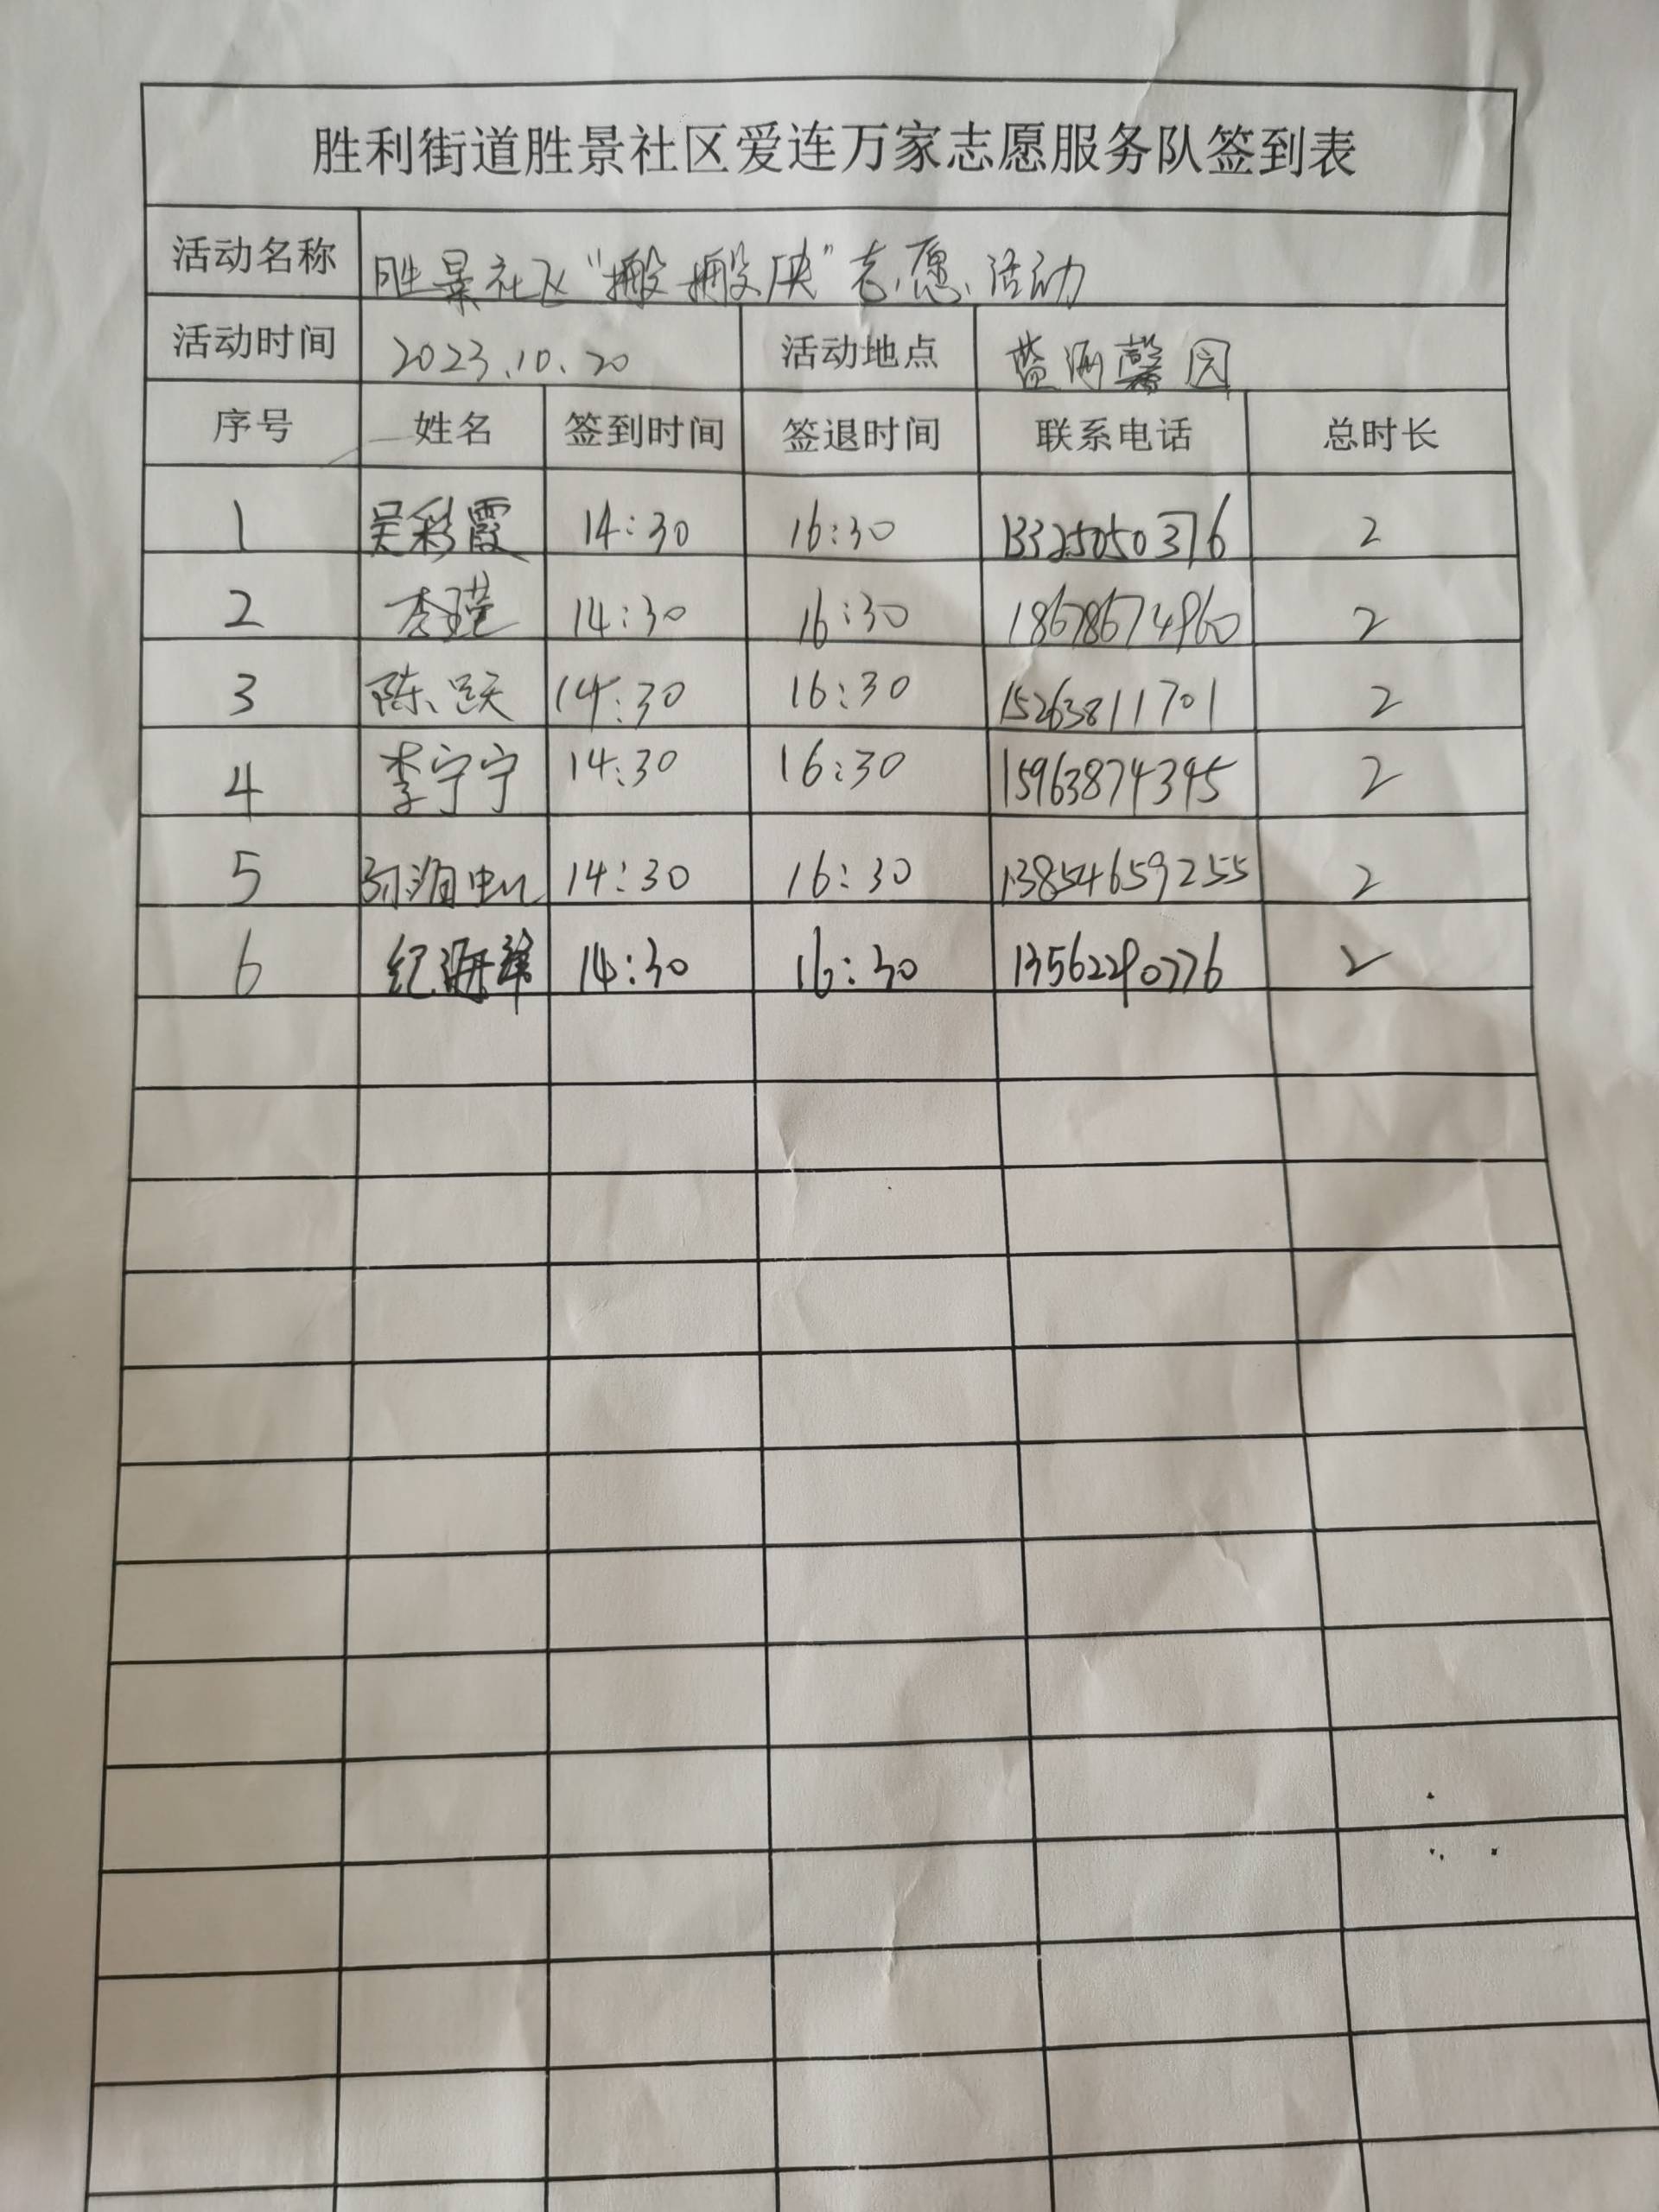 胜利街道胜景社区爱连万家志愿服务队签到表
活动名称 胜景社区“搬搬庆”志愿活动
活动时间 2023.10.20 活动地点 蓝海馨园
序号 姓名 签到时间 签退时间 联系电话 总时长
1 吴彩霞 14:30 16:30 13325050376 2
2 李瑾 14:30 16:30 18678674960 2
3 陈跃 14:30 16:30 15263811701 2
4 李宁宁 14:30 16:30 15963874345 2
5 14:30 16:30 13854659255 2
6 纪海军 14:30 16:30 13562290776 2